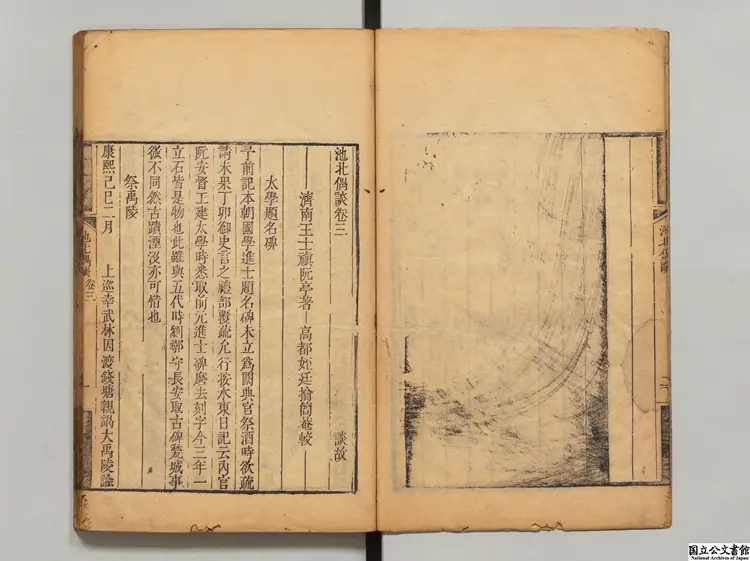 池北偶談
池北偶談卷三 談故
濟南王士禛阮亭著 高都姪廷掄簡菴較
太學題名碑
予前記本朝國學進士題名碑未立爲闕典官祭酒時欲疏
請未果丁卯御史言之禮部覆疏允行按水東日記云內官
阮安督工建太學時悉取前元進士碑磨去刻字今三年一
立石皆是物也此雖與五代時劉鄩守長安取古碑甃城事
後不同然古蹟湮沒亦可惜也
祭禹陵
康熙己巳二月 上巡幸武林因渡錢塘親謁大禹陵諭
池北偶談 卷三
国立公文書館
National Archives of Japan